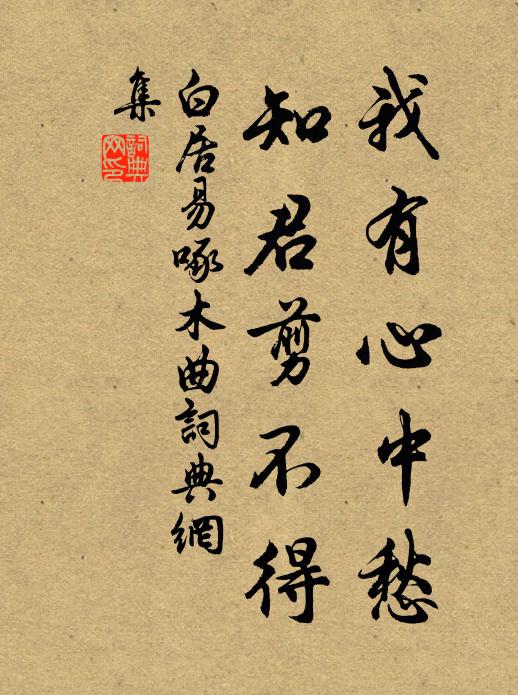 我有心中愁
知君剪不得
白居易啄木曲詞典網
集
詞典
网印